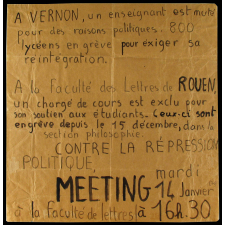 A VERNON, un enseignant est muté
pour des raisons politiques. 800
lycéens en grève pour exiger sa
réintégration.
A la faculté des Lettres de ROUEN,
un chargé de cours est exclu pour
son soutien aux étudiants. Ceux-ci sont
en grève depuis le 15 décembre, dans la
section philosophie.
CONTRE LA RÉPRESSION
POLITIQUE,
mardi
MEETING 14 Janvier
à la faculté de lettres à 16h.30